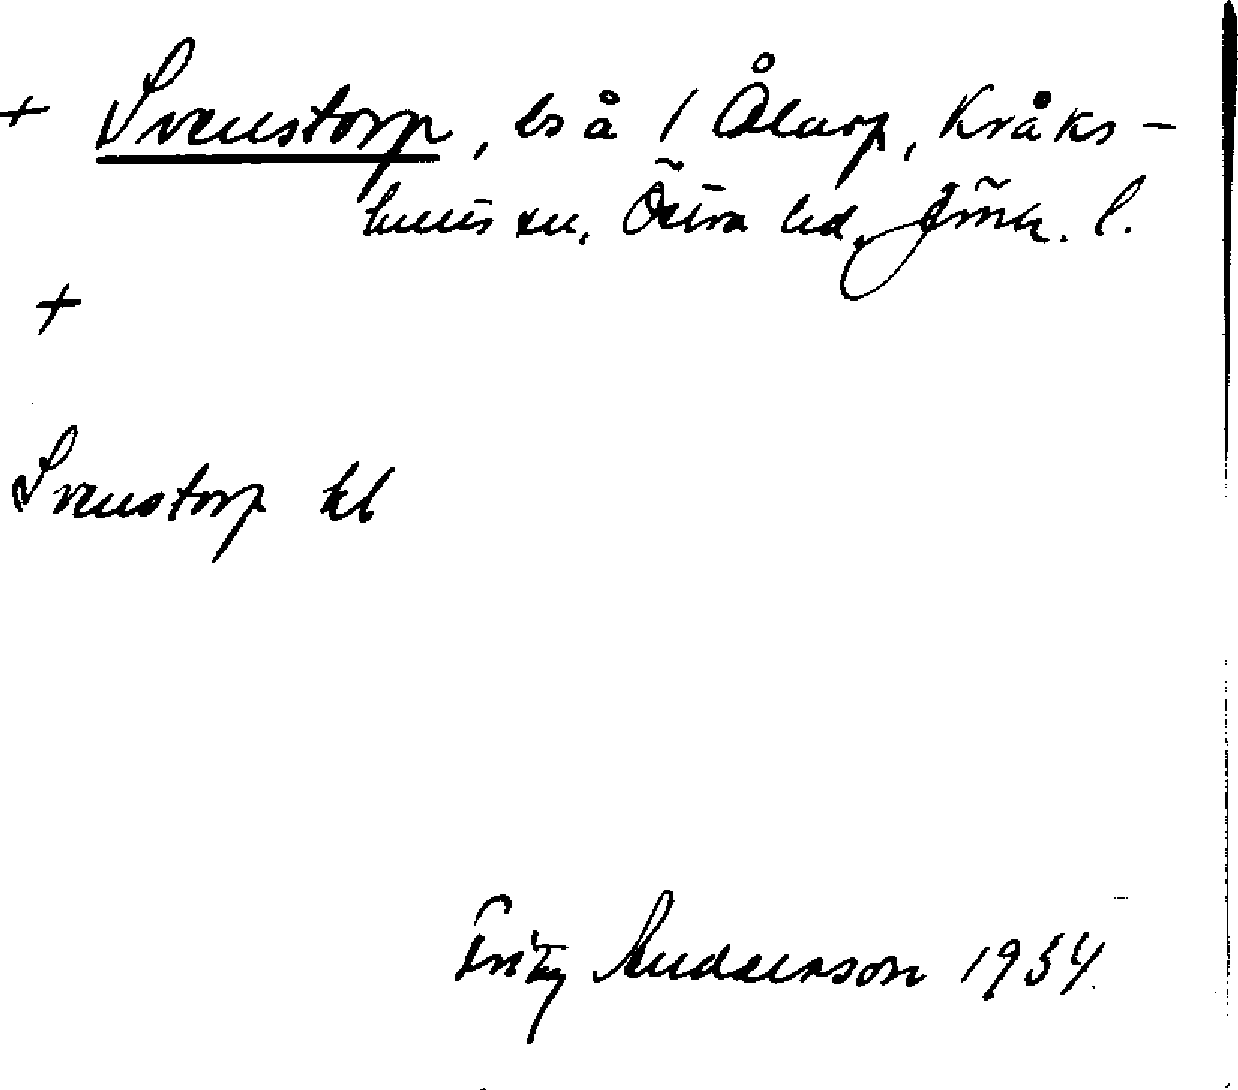 + Svenstorp, bs å 1 Ålarp, Kråks-
hults sn, Östra hd, Jönk. l.
+
Svenstorp hl
Fritz Andersson 1934